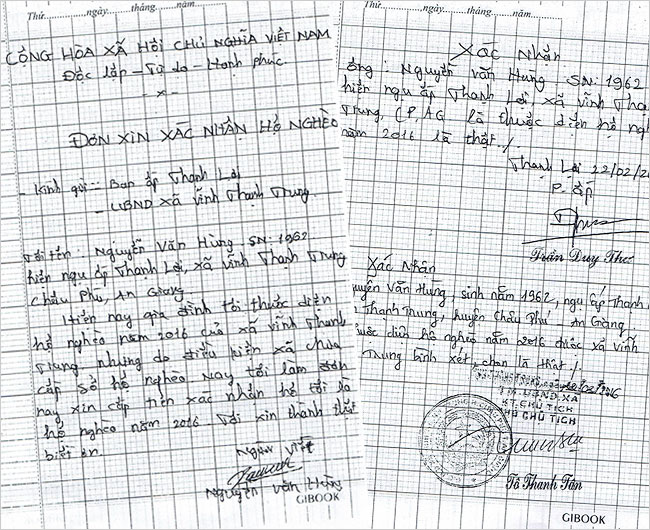 Thứ..........ngày..........tháng..........năm..........
CỘNG HÒA XÃ HỘI CHỦ NGHĨA VIỆT NAM
Độc lập - Tự do - Hạnh phúc
- x -
ĐƠN XIN XÁC NHẬN HỘ NGHÈO
- Kính gửi: - Ban ấp Thạnh Lợi
- UBND xã Vĩnh Thạnh Trung.
Tôi tên: Nguyễn Văn Hùng. SN: 1962.
hiện ngụ ấp Thạnh Lợi, xã Vĩnh Thạnh Trung
Châu Phú, An Giang
Hiện nay gia đình tôi thuộc diện
hộ nghèo năm 2016 của xã Vĩnh Thạnh
Trung, nhưng do điều kiện xã chưa
cấp sổ hộ nghèo nay tôi làm đơn
nay xin cấp trên xác nhận hộ tôi là
hộ nghèo năm 2016. Tôi xin thành thật
biết ơn.
Người viết
Nguyễn Văn Hùng
GIBOOK
Thứ..........ngày..........tháng..........năm..........
Xác Nhận
ông: Nguyễn Văn Hùng SN: 1962
hiện ngụ ấp Thạnh Lợi, xã Vĩnh Thạ
Trung, CP, AG là thuộc diện hộ ngh
năm 2016 là thật./.
Thạnh Lợi 22/02/20
P. ấp
Trần Duy Thơ
Xác Nhận
guyễn Văn Hùng, sinh năm 1962, ngụ ấp Thạnh
Thạnh Trung, huyện Châu Phú - An Giang.
uộc diện hộ nghèo năm 2016 được xã Vĩnh
Trung bình xét, là thật./.
TM. UBND XÃ
KT. CHỦ TỊCH
PHÓ CHỦ TỊCH
Tô Thanh Tân
GIBOOK